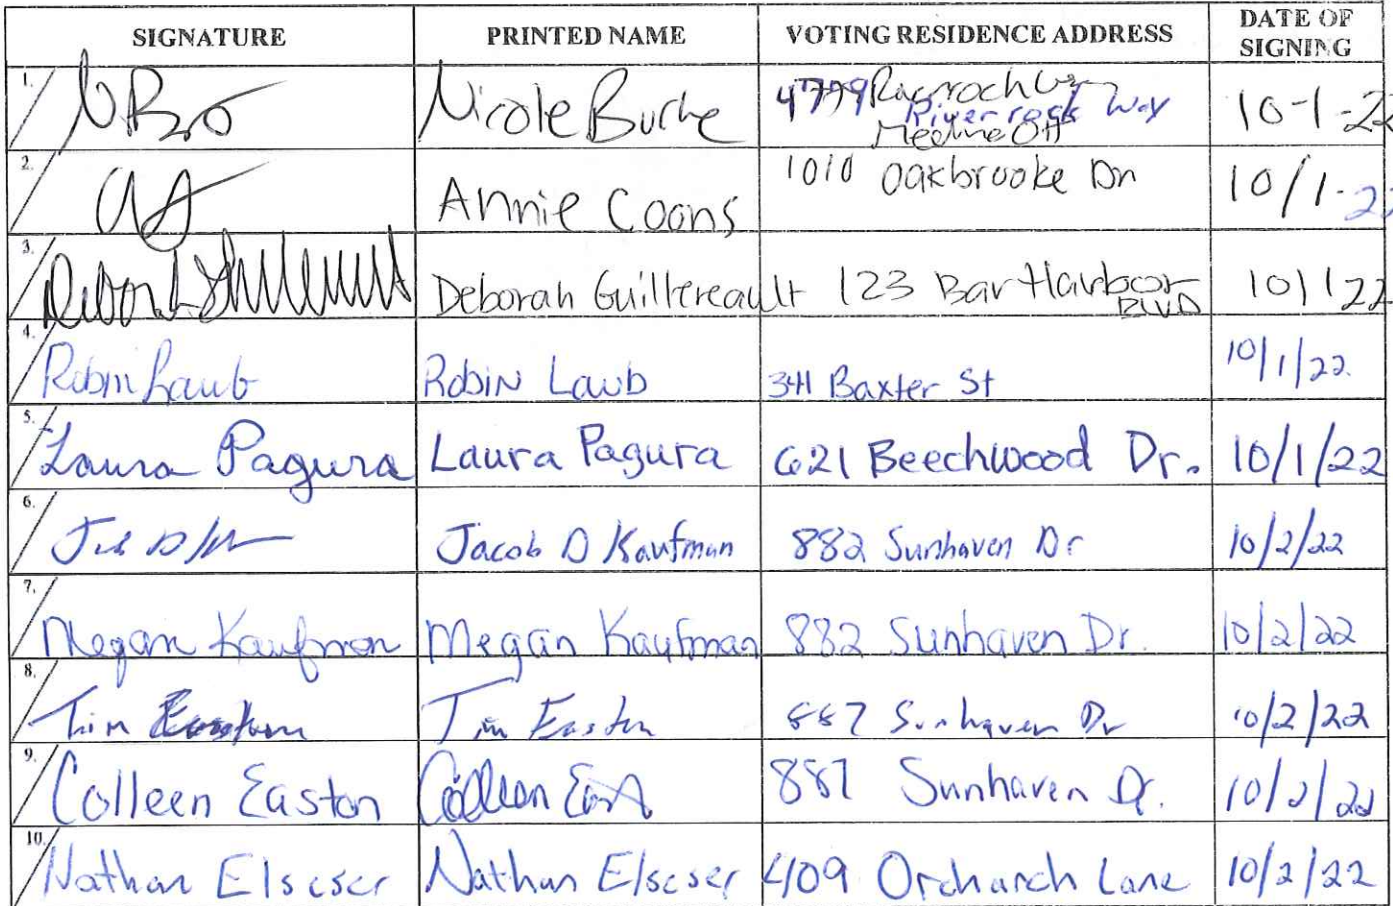 SIGNATURE PRINTED NAME VOTING RESIDENCE ADDRESS DATE OF SIGNING
1. Nicole Burke 4779 Riverrock Way 10-1-22
2. Annie Coons 1010 Oakbrooke Dr 10/1-22
3. Deborah Guillereault 123 Bar Harbor BLVD 10/1/22
4. Robin Laub Robin Laub 341 Baxter St 10/1/22
5. Laura Pagura Laura Pagura 621 Beechwood Dr. 10/1/22
6. Jacob D Kaufman 882 Sunhaven Dr 10/2/22
7. Megan Kaufman Megan Kaufman 882 Sunhaven Dr. 10/2/22
8. Tim Easton Tim Easton 887 Sunhaven Dr 10/2/22
9. Colleen Easton Colleen East 887 Sunhaven Dr. 10/2/22
10. Nathan Elseser Nathan Elseser 409 Orchard Lane 10/2/22